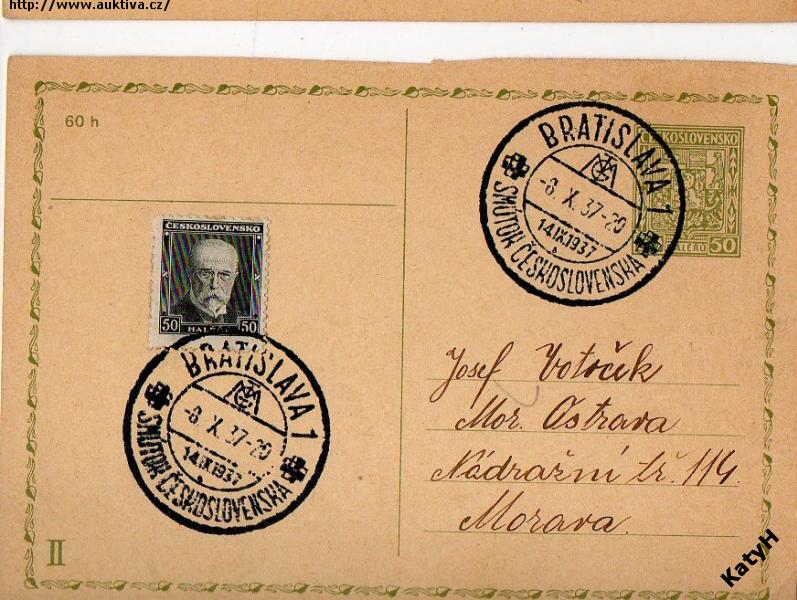 http://www.auktiva.cz/
60 h
ČESKOSLOVENSKO
50 HALÉŘŮ 50
BRATISLAVA 1
TGM
-8. X. 37-20
14.IX.1937
SMÚTOK ČESKOSLOVENSKA
ČESKOSLOVENSKO
HALÉŘŮ 50
BRATISLAVA 1
TGM
-8. X. 37-20
14.IX.1937
SMÚTOK ČESKOSLOVENSKA
Josef Votoček
Mor. Ostrava
Nádražní tř. 114.
Morava.
II
KatyH